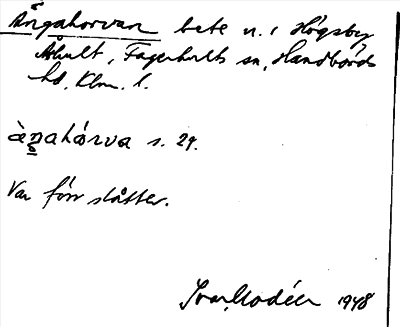 Ängahorvan bete u. i Högsby
Åhult, Fagerhults sn, Handbörds
hd, Klm. l.
àŋahó̤rva s. 29.
Var förr slåtter.
Ivar Modéer 1948